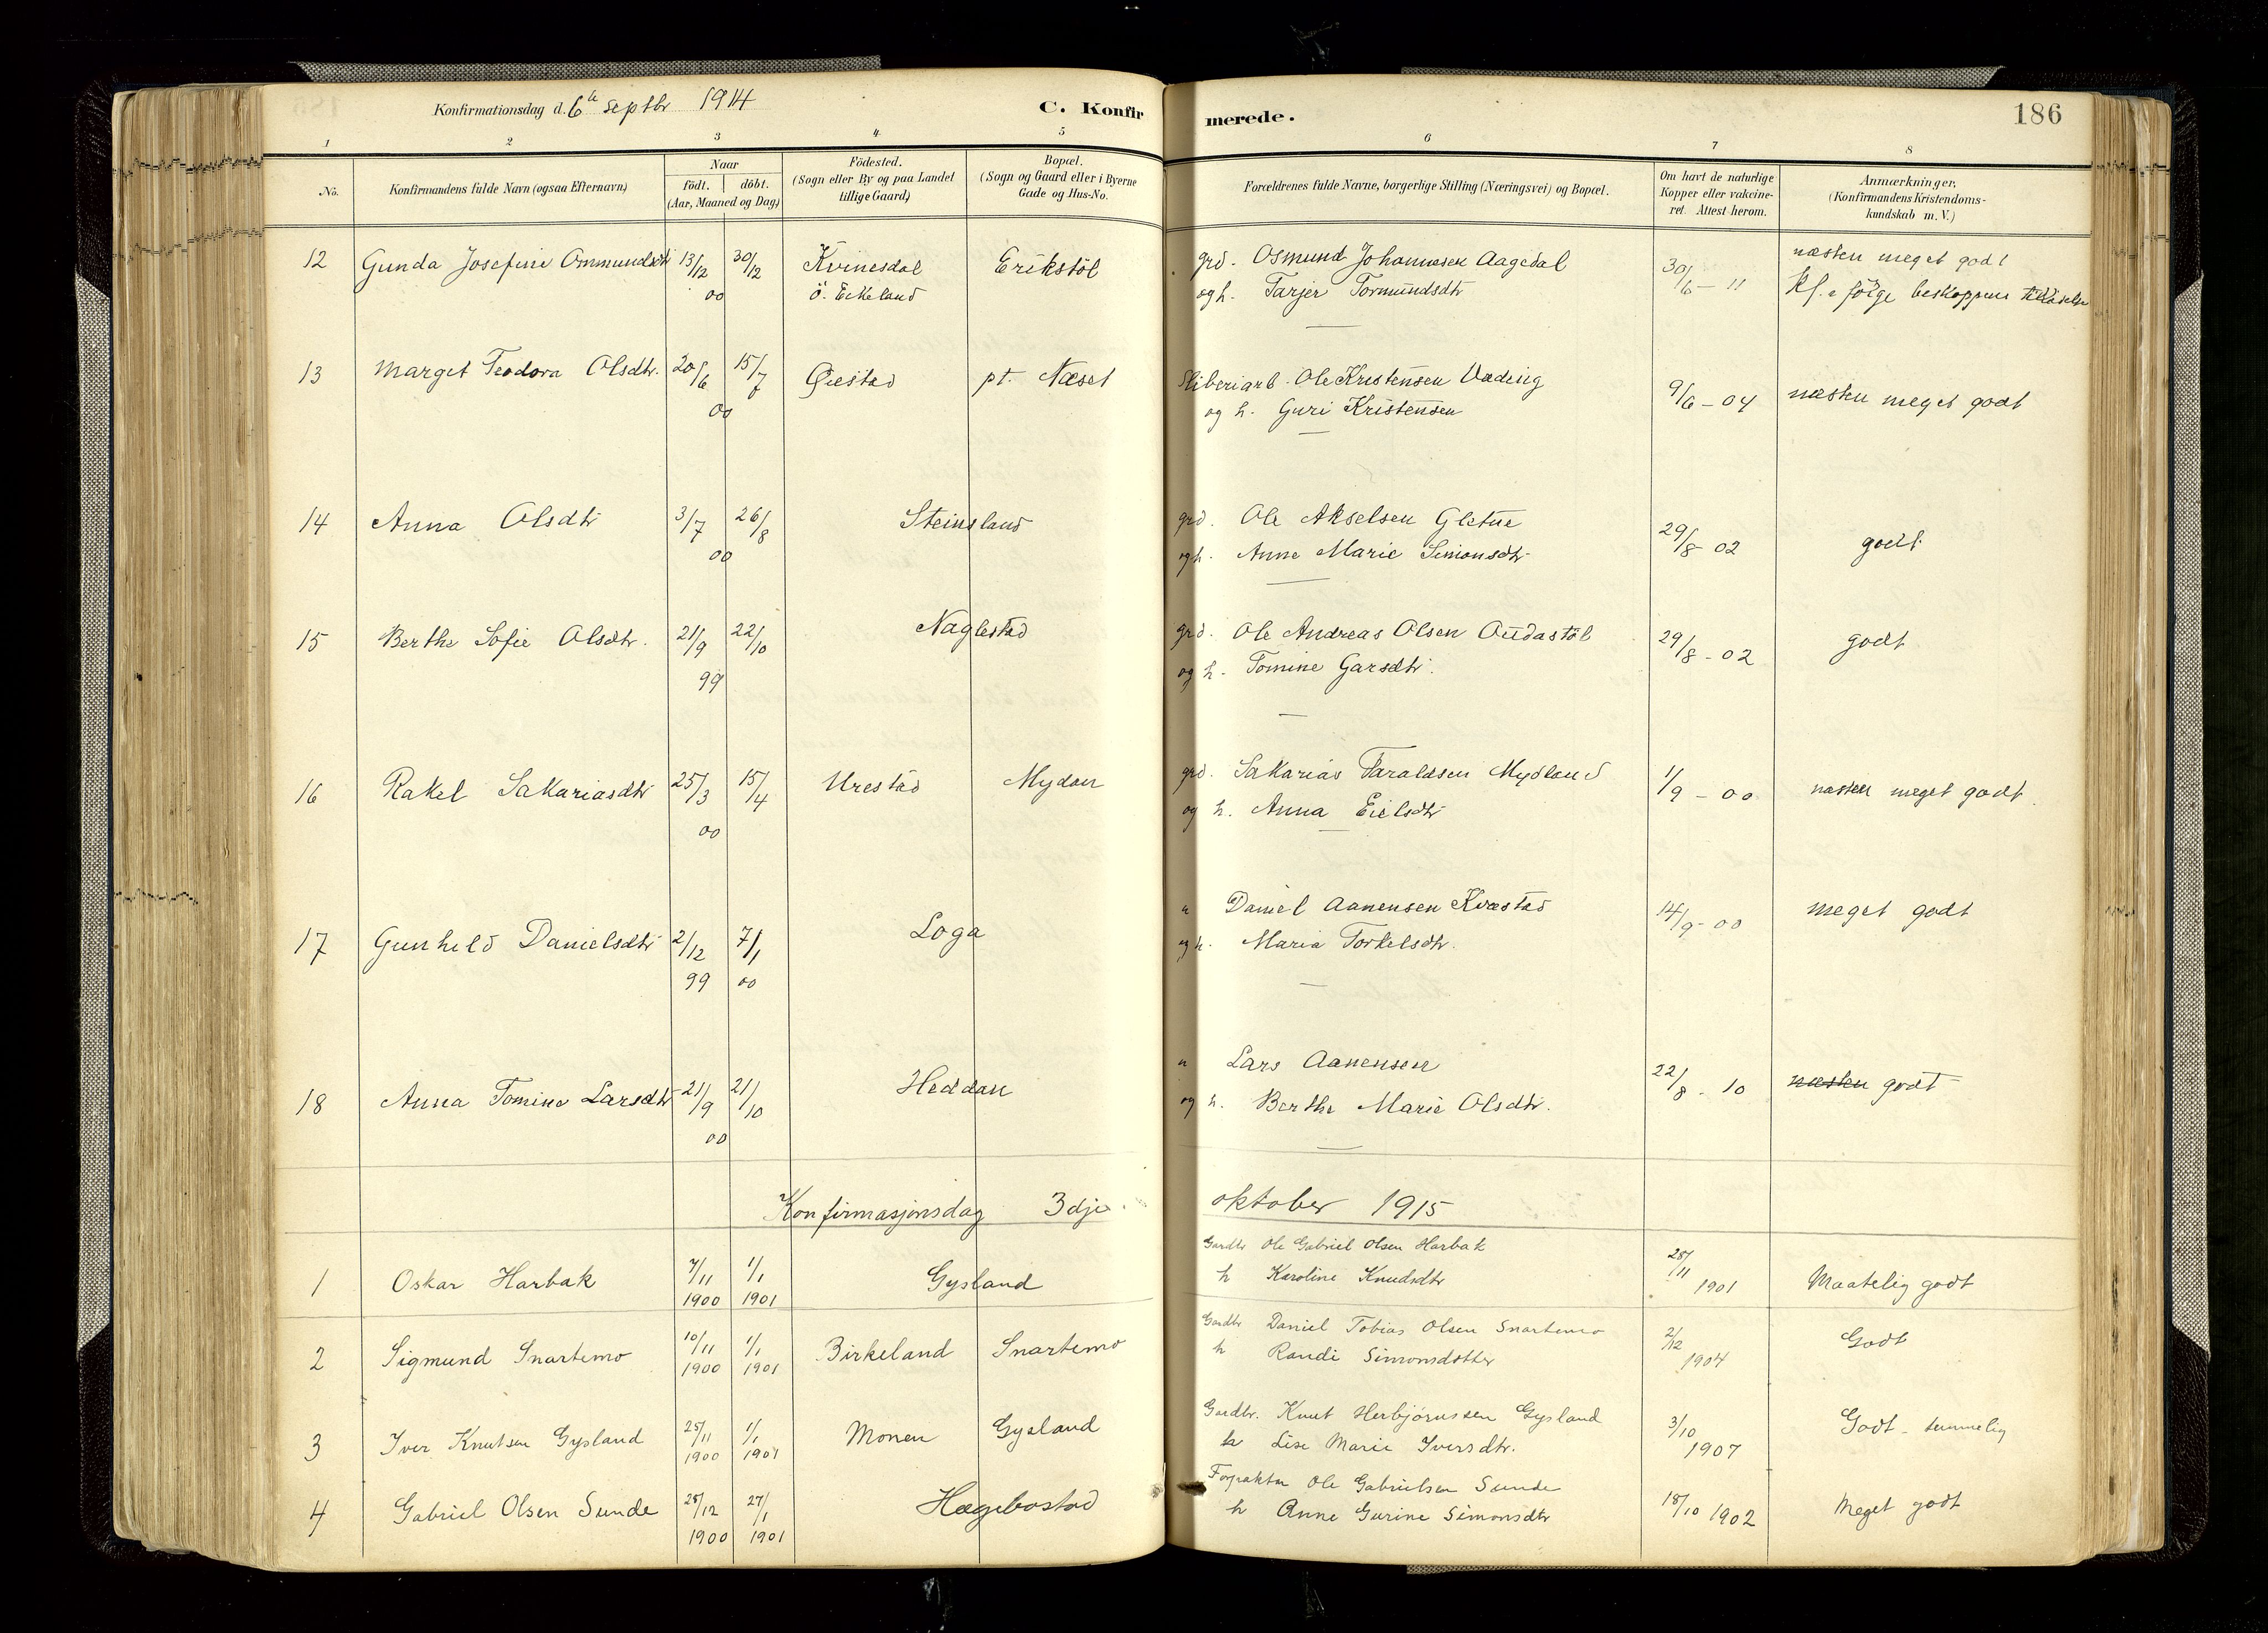 Konfirmationsdag d. 6te Septbr 1914
C. Konfirmerede.
186
1 2 3 4 5 6 7 8
No.
Konfirmandens fulde Navn (ogsaa Efternavn)
Naar
födt. döbt.
(Aar, Maaned og Dag)
Födested.
(Sogn eller By og paa Landet
tillige Gaard)
Bopæl.
(Sogn og Gaard eller i Byerne
Gade og Hus-No.
Forældrenes fulde Navne, borgerlige Stilling (Næringsvei) og Bopæl.
Om havt de naturlige
Kopper eller vakcine-
ret. Attest herom.
Anmærkninger.
(Konfirmandens Kristendoms-
kundskab m. V.)
12 Gunda Josefine Ommundsdtr 13/12 30/12 Kvinesdal Erikstöl grd. Osmund Johannesen Aagedal 30/6 - 11 næsten meget godt
00 Ö. Eikeland og h. Tarjer Tormundsdtr Kf. ifölge beskoppens
13 Marget Teodora Olsdtr. 20/6 15/7 Öiestad pt. Næset Sliberiarb. Ole Kristensen Væding 9/6 - 04 næsten meget godt
00 og h. Guri Kristensen
14 Anna Olsdtr 3/7 26/8 Steinsland grd. Ole Akselsen Gletne 29/8 - 02 godt
00 og h. Anne Marie Simonsdtr
15 Berthe Sofie Olsdtr. 21/9 22/10 Naglestad grd. Ole Andreas Olsen Oudastöl 29/8 - 02 godt
99 og h. Tomine Garsdtr.
16 Rakel Sakariasdtr 25/3 15/4 Urestad Mydan grd. Sakarias Taraldsen Mydland 1/9 - 00 næsten meget godt.
00 og h. Anna Eielsdtr
17 Gunhild Danielsdtr 2/12 7/1 Loga " Daniel Aanensen Kvæstad 14/9 - 00 meget godt
99 00 og h. Maria Torkelsdtr.
18 Anna Tomine Larsdtr 21/9 21/10 Heddan " Lars Aanensen 22/8 - 10 næsten godt
00 og h. Berthe Marie Olsdtr.
Konfirmasjonsdag 3dje oktober 1915
1 Oskar Harbak 7/11 1900 1/1 1901 Gysland Gardbr Ole Gabriel Olsen Harbak 28/11 1901 Maatelig godt
h Karoline Knudsdtr
2 Sigmund Snartemo 10/11 1900 1/1 1901 Birkeland Snartemo Gardbr Daniel Tobias Olsen Snartemo 2/12 1904 Godt
h Randi Simonsdotter
3 Iver Knutsen Gysland 25/11 1900 1/1 1901 Monen Gysland Gardbr. Knut Herbjörnssen Gysland 3/10 1907 Godt - temmelig
h Lise Marie Iversdtr.
4 Gabriel Olsen Sunde 25/12 1900 27/1 1901 Hægebostad Forpakter Ole Gabrielsen Sunde 18/10 1902 Meget godt
h Anne Gurine Simonsdtr